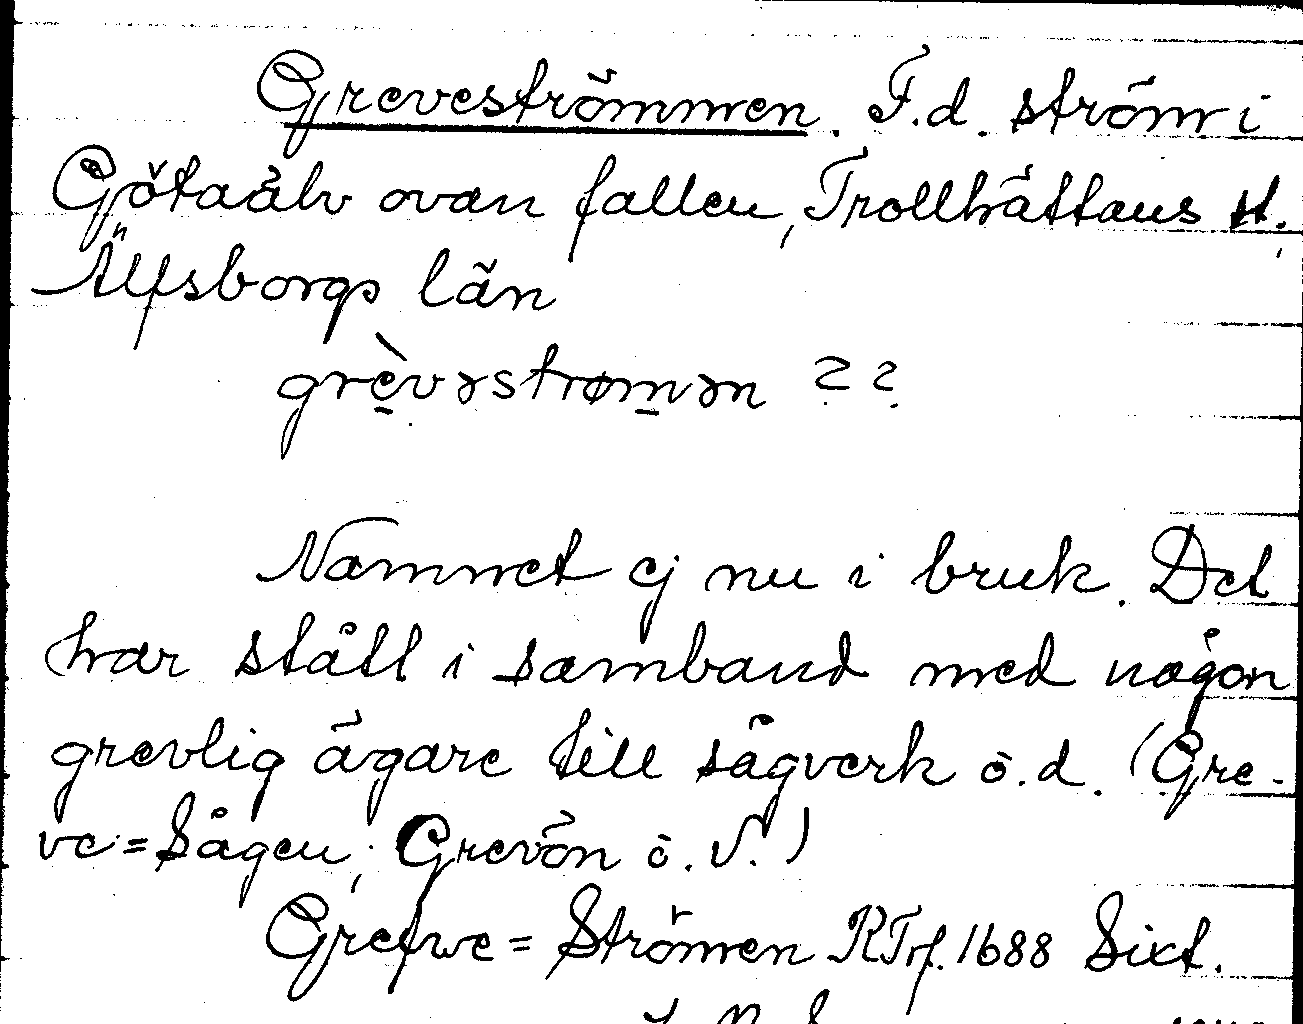 Greveströmmen. F.d. ström i
Götaälv ovan fallen, Trollhättans st.,
Älfsborgs län
grèvəstrømən ? ?
Namnet ej nu i bruk. Det
har stått i samband med någon
grevlig ägare till sågverk o.d. (Gre-
ve=Sågen, Greveön o.s.v.)
Grefwe=Strömen RTrf. 1688 Sixt.